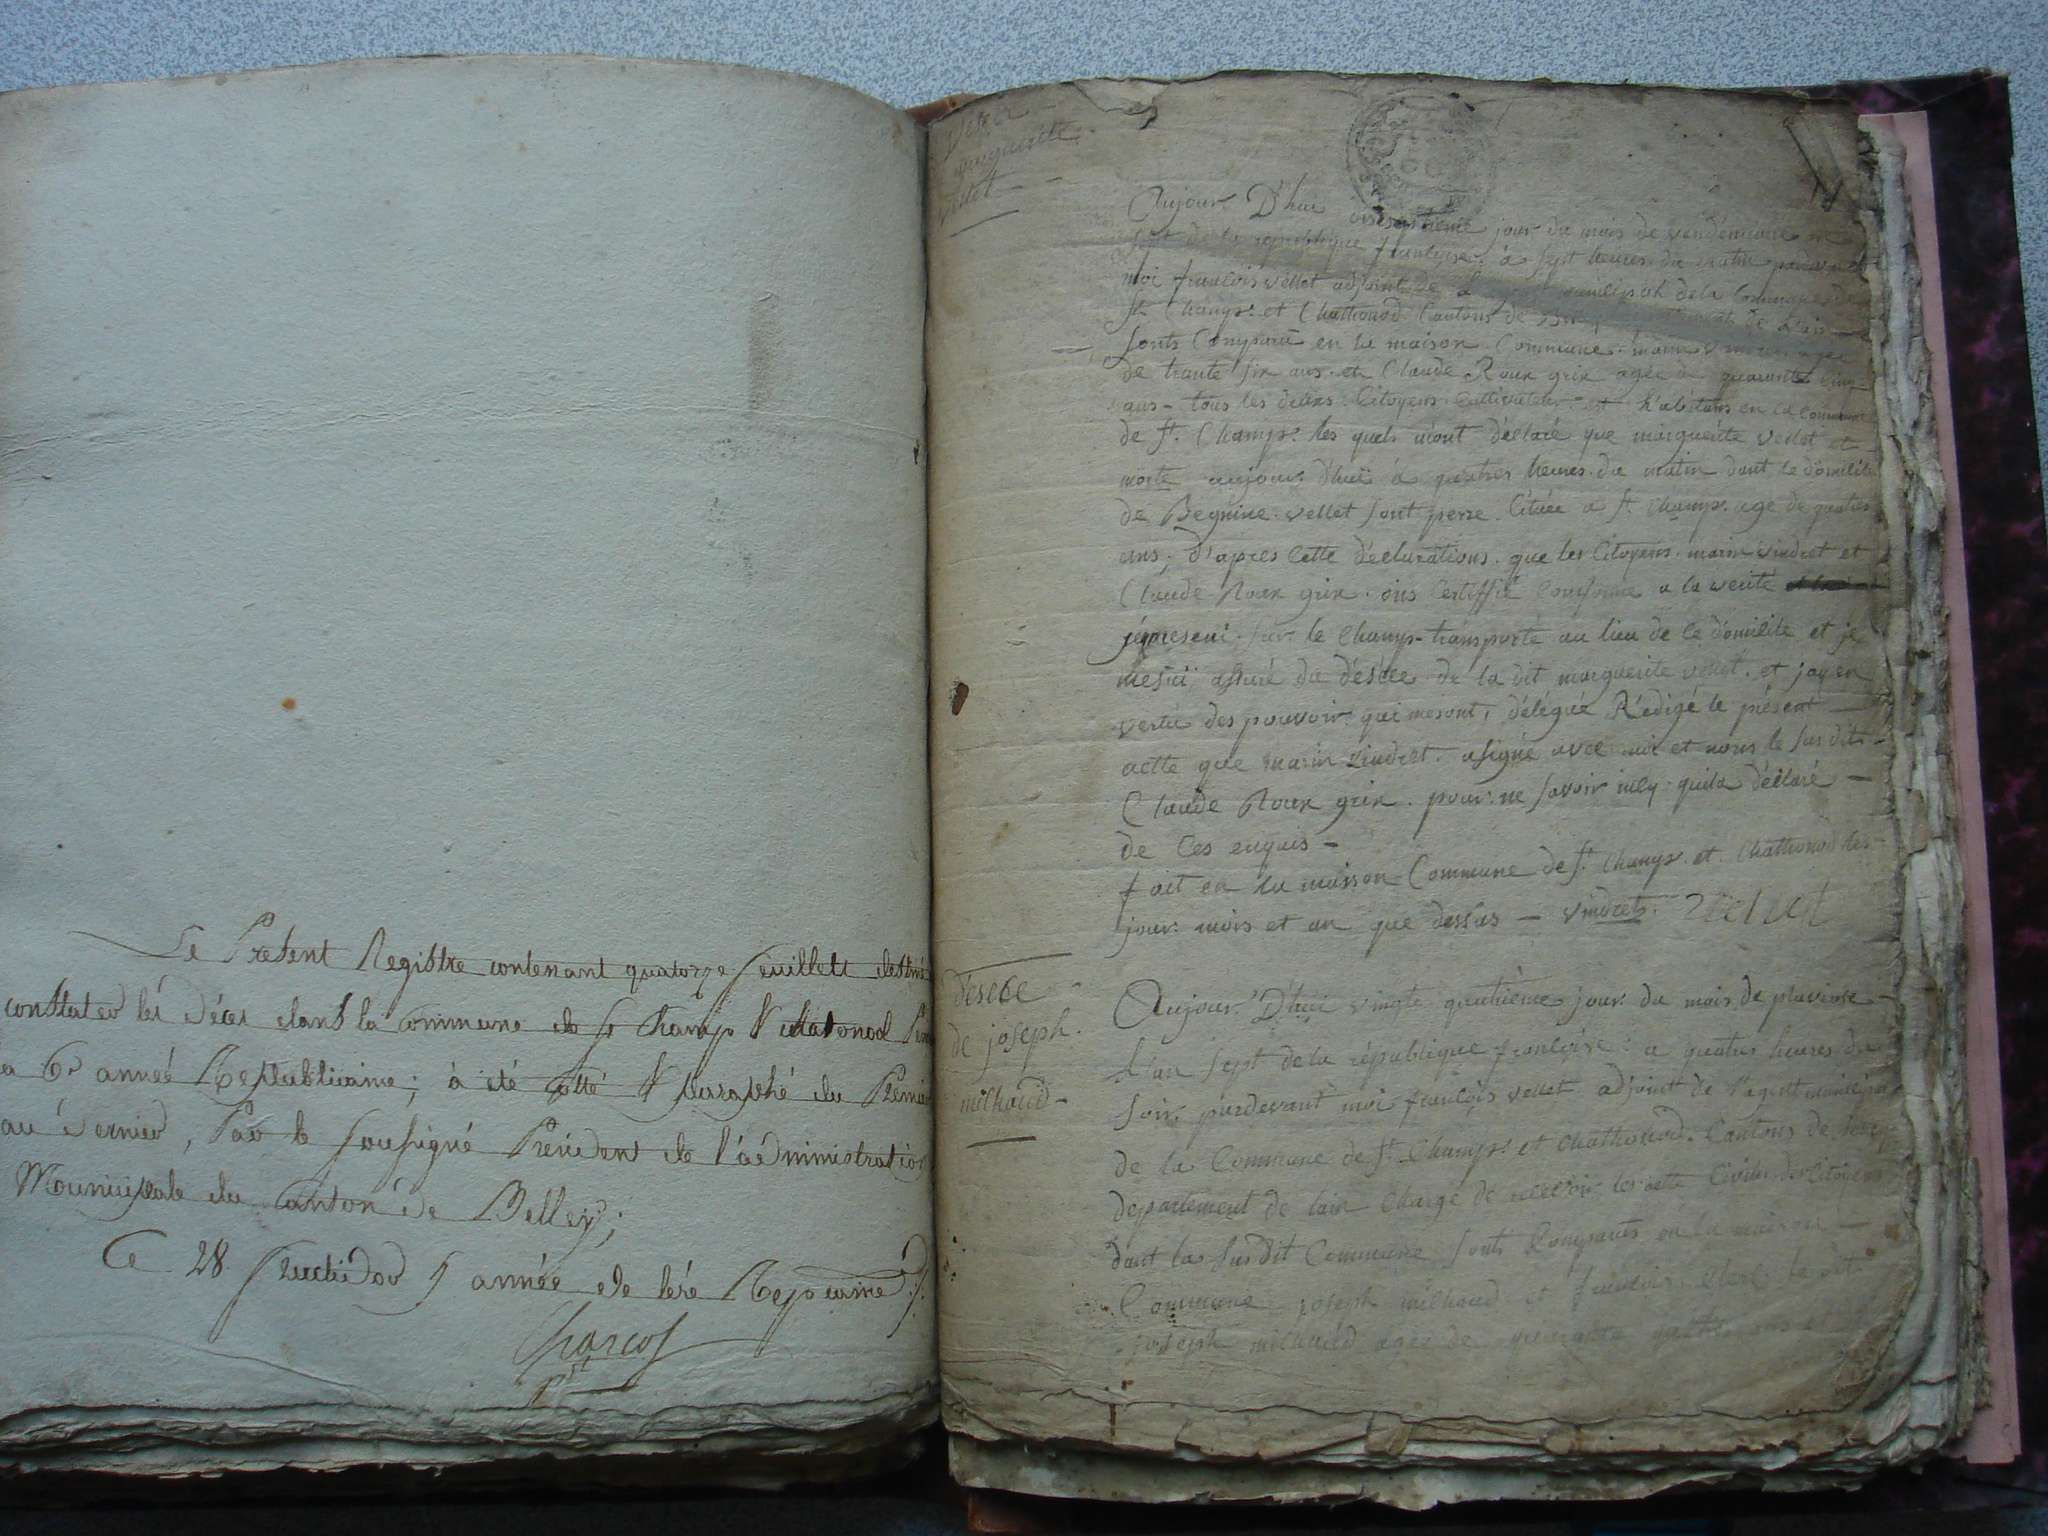 Le Present Registre contenant quatorze feuillets destiné
constater les décès dans la commune de St Champ & chatonod
a 6e année Republicaine; à été cotté & paraphé du Premier
au dernier, Par le soussigné President de l'administration
Municipale du canton de Belley;
Ce 28 fructidor 5 année de l'ère Repcaine
Charcot
Pt
marguerite
vellet
Aujour D'hui jour du mois de vendemiaire
sept de la republique françoise a sept heures du matin
moi françois vellet adjoint de municipal de la Commune de
St Champs et Chathonod Cantons de
sonts Comparû en la maison Commune marin
de trante six ans et Claude Roux grix agée de quarante cinq
ans - tous les deuxs Citoyens Cultivateur et habitans en la commune
de St Champs les quels m'ont déclaré que marguerite vellet et
morte aujour d'huï à quatres heures du matin dant le domicile
de vellet sont perre Cituée a St Champs age de quatre
ans, d'apres Cette déclarations que les Citoyens marin vindret et
Claude Roux grix ons Certiffié Conforme a la verité
sur le Champ transporté au lieu de ce domicile et je
mesui assuré du déscée de la dit marguerite vellet et jay en
vertu des pouvoir qui mesont délégué Rédigé le présent
actte que marin vindret asigné avec moi et nom le susdit
Claude Roux grix pour ne savoir quila déclaré
de Ces enquis
fait en la maison Commune de St Champs et Chathonod les
jour mois et an que dessus - vindretz vellet
déscée
de joseph
milhaud
Aujour D'hui vingte quatrième jour du mois de pluviose
L'an sept de la république françoise a quatres heures du
soir pardevant moi françois vellet adjoint de l'agent municipal
de la Commune de St Champs et Chathonod Cantons de
departement de lain Chargé de recevoir les acte Civils des Citoyens
dant la susdit Commune sonts Comparus en la maison
Commune joseph milhaud et françois le dit
joseph milhaud agée de quarante quatre ans et